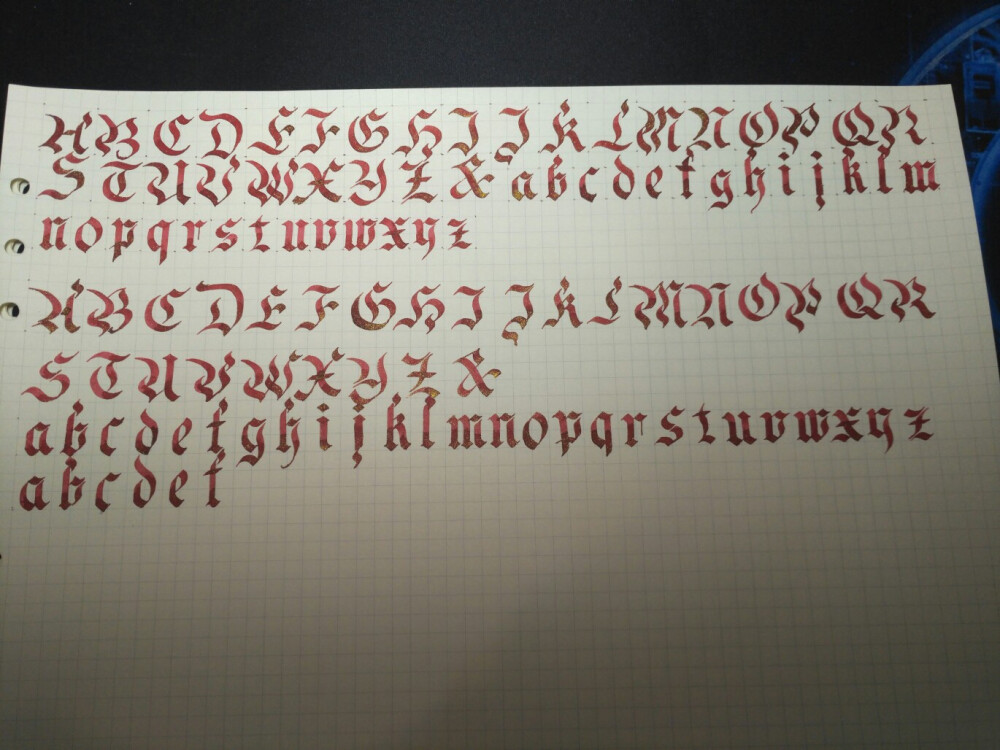 A B C D E F G H I J K L M N O P Q R
S T U V W X Y Z & a b c d e f g h i j k l m
n o p q r s t u v w x y z
A B C D E F G H I J K L M N O P Q R
S T U V W X Y Z &
a b c d e f g h i j k l m n o p q r s t u v w x y z
a b c d e f